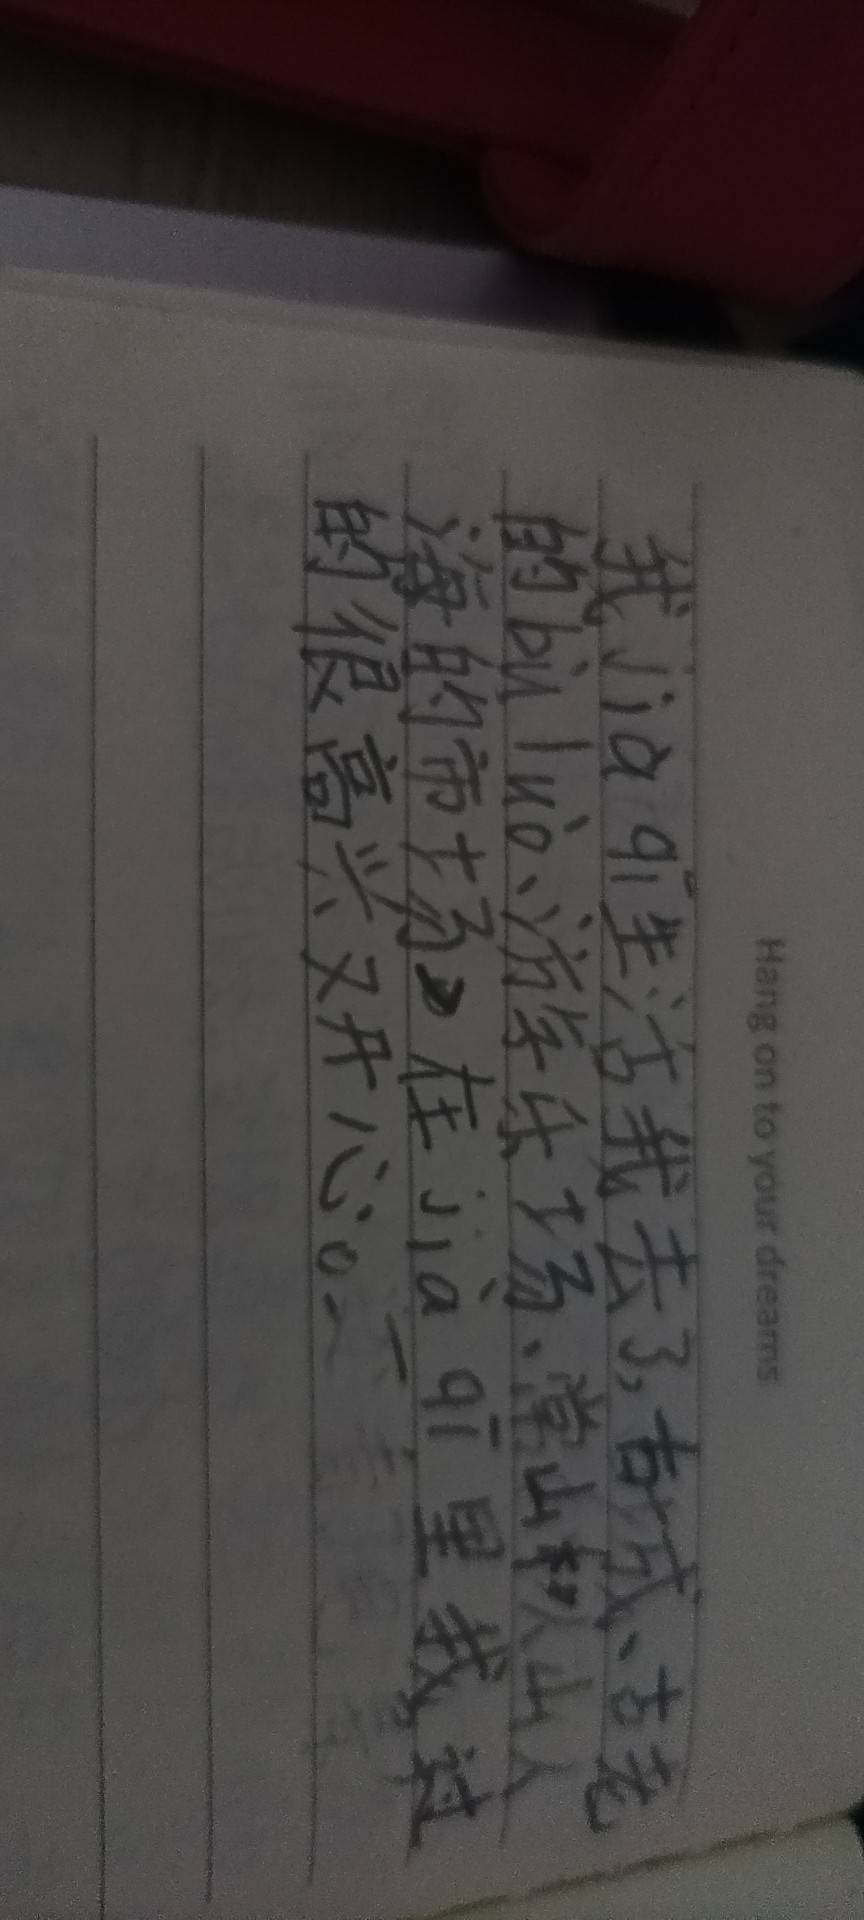 Hang on to your dreams
我jià qī生活我去了,古城、古老
的bù luò、游乐场、常山和人山人
海的市场,在jià qī里我过
的很高兴又开心。